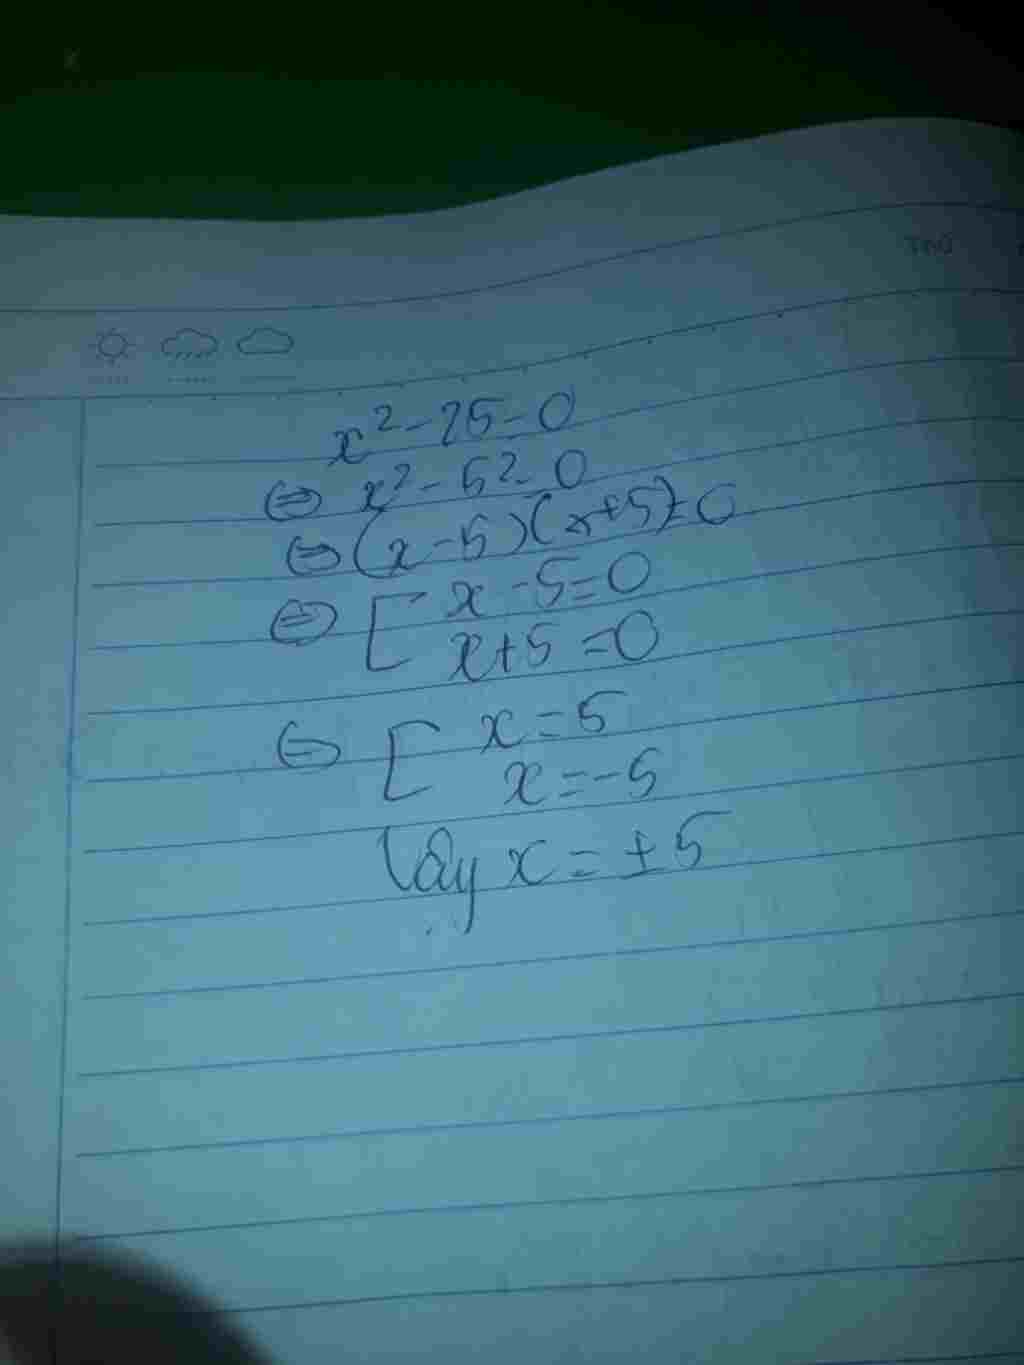 Thứ
x² - 25 = 0
⇔ x² - 5² = 0
⇔ (x - 5)(x + 5) = 0
⇔ [ x - 5 = 0
x + 5 = 0
⇔ [ x = 5
x = -5
Vậy x = ±5